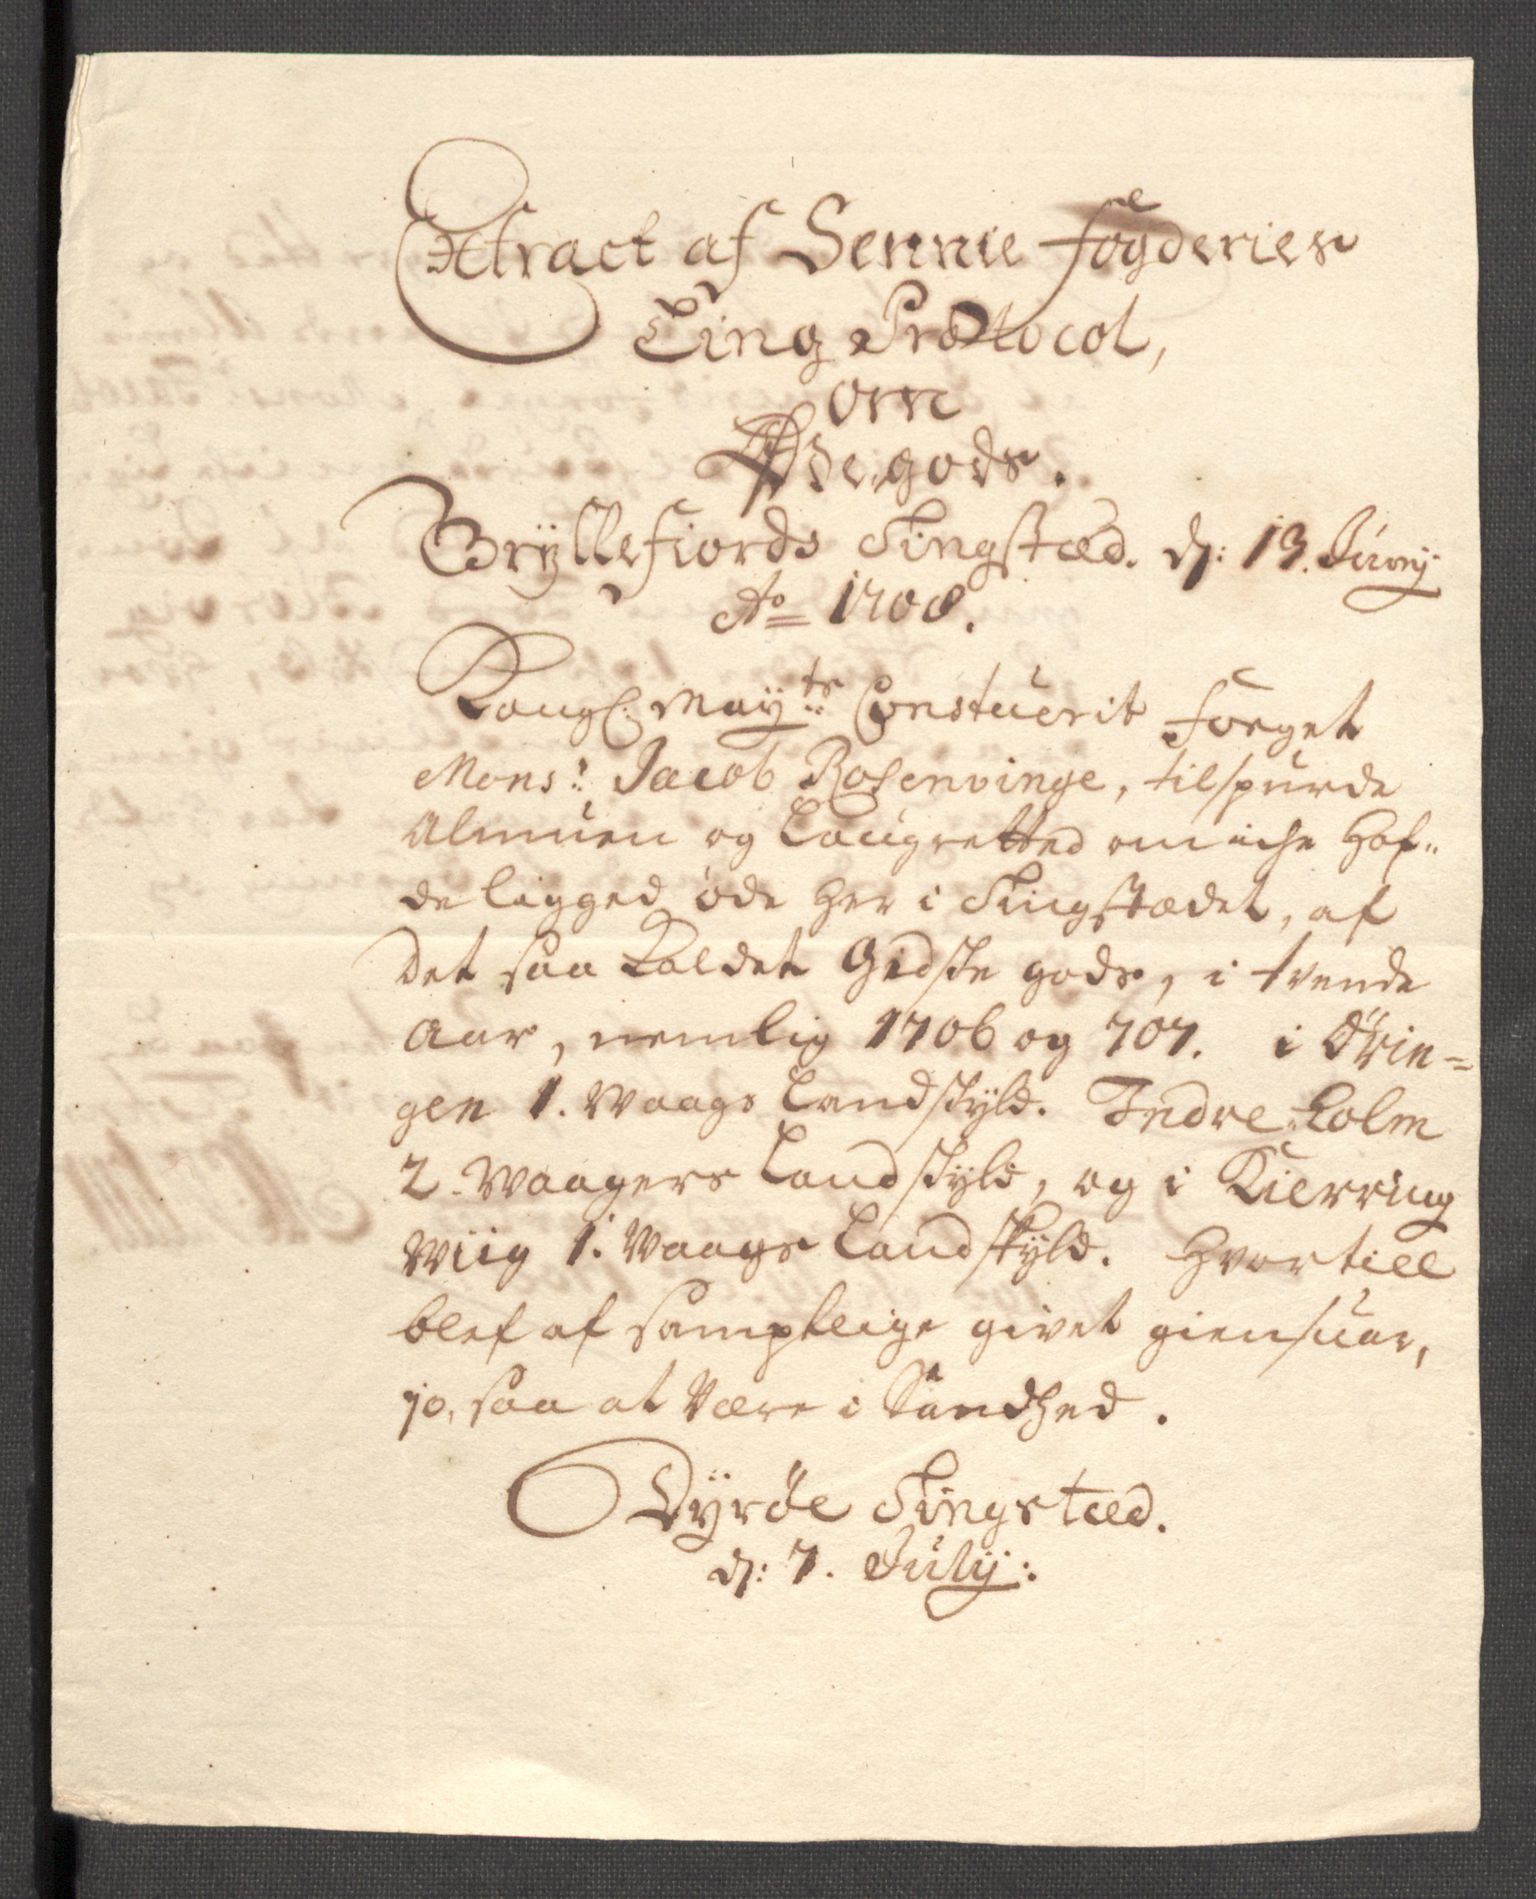 Extract af Sennie fogderies
Ting Protocol,
om
Øde, gods.
Gryllefiords Tingstæd. d: 13. Juny
Ao 1708.
Kongl: Mayts Constuerit Foeget
Monsr: Jacob Rosenvinge, tilspurde
Almuen og Laugretted om iche Haf-
de ligged øde her i Tingstædet, af
det saa kaldet Gidske gods, i tvende
Aar, nemlig 1706 og 707. i Ørin-
gen 1. Waags Landskyld. Indre Holm
2. Waagers Landskyld, og i Kierring
Wiig 1. Waags Landskyld. Hvortill
blef af samptlige givet giensuar,
jo, saa at være i Sandhed.
Dyrøe Tingstæd.
d: 7. July: